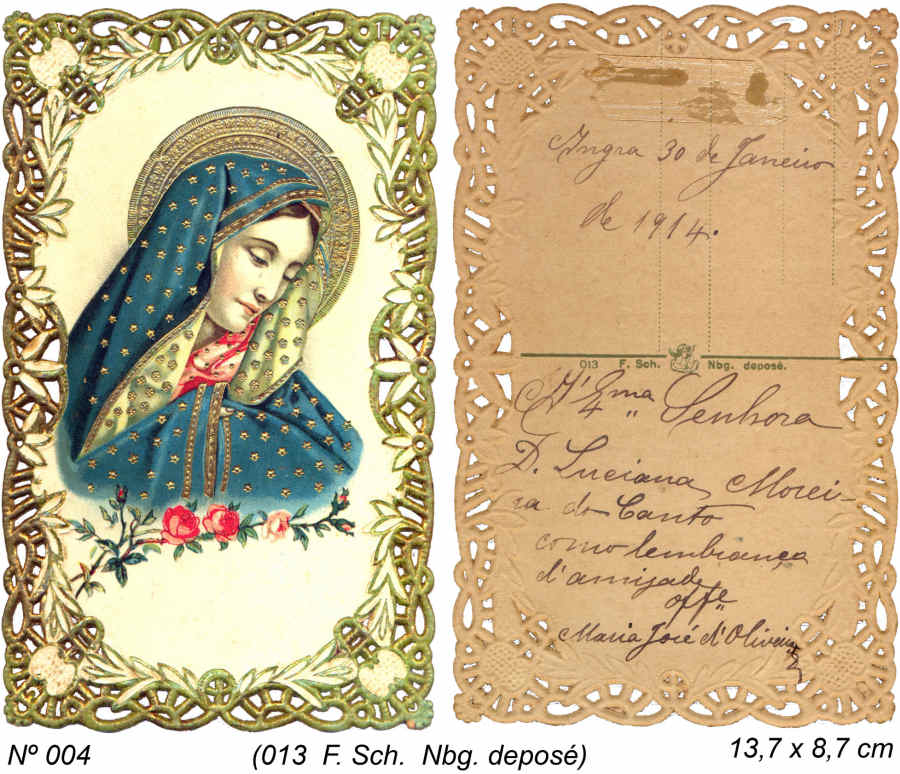 Angra 30 de Janeiro
de 1914.
013 F. Sch. Nbg. deposé.
A' Exma Senhora
D. Luciana Morei-
ra do Canto
como lembrança
d'amizade
offe
Maria José d'Oliveira
Nº 004
(013 F. Sch. Nbg. deposé)
13,7 x 8,7 cm